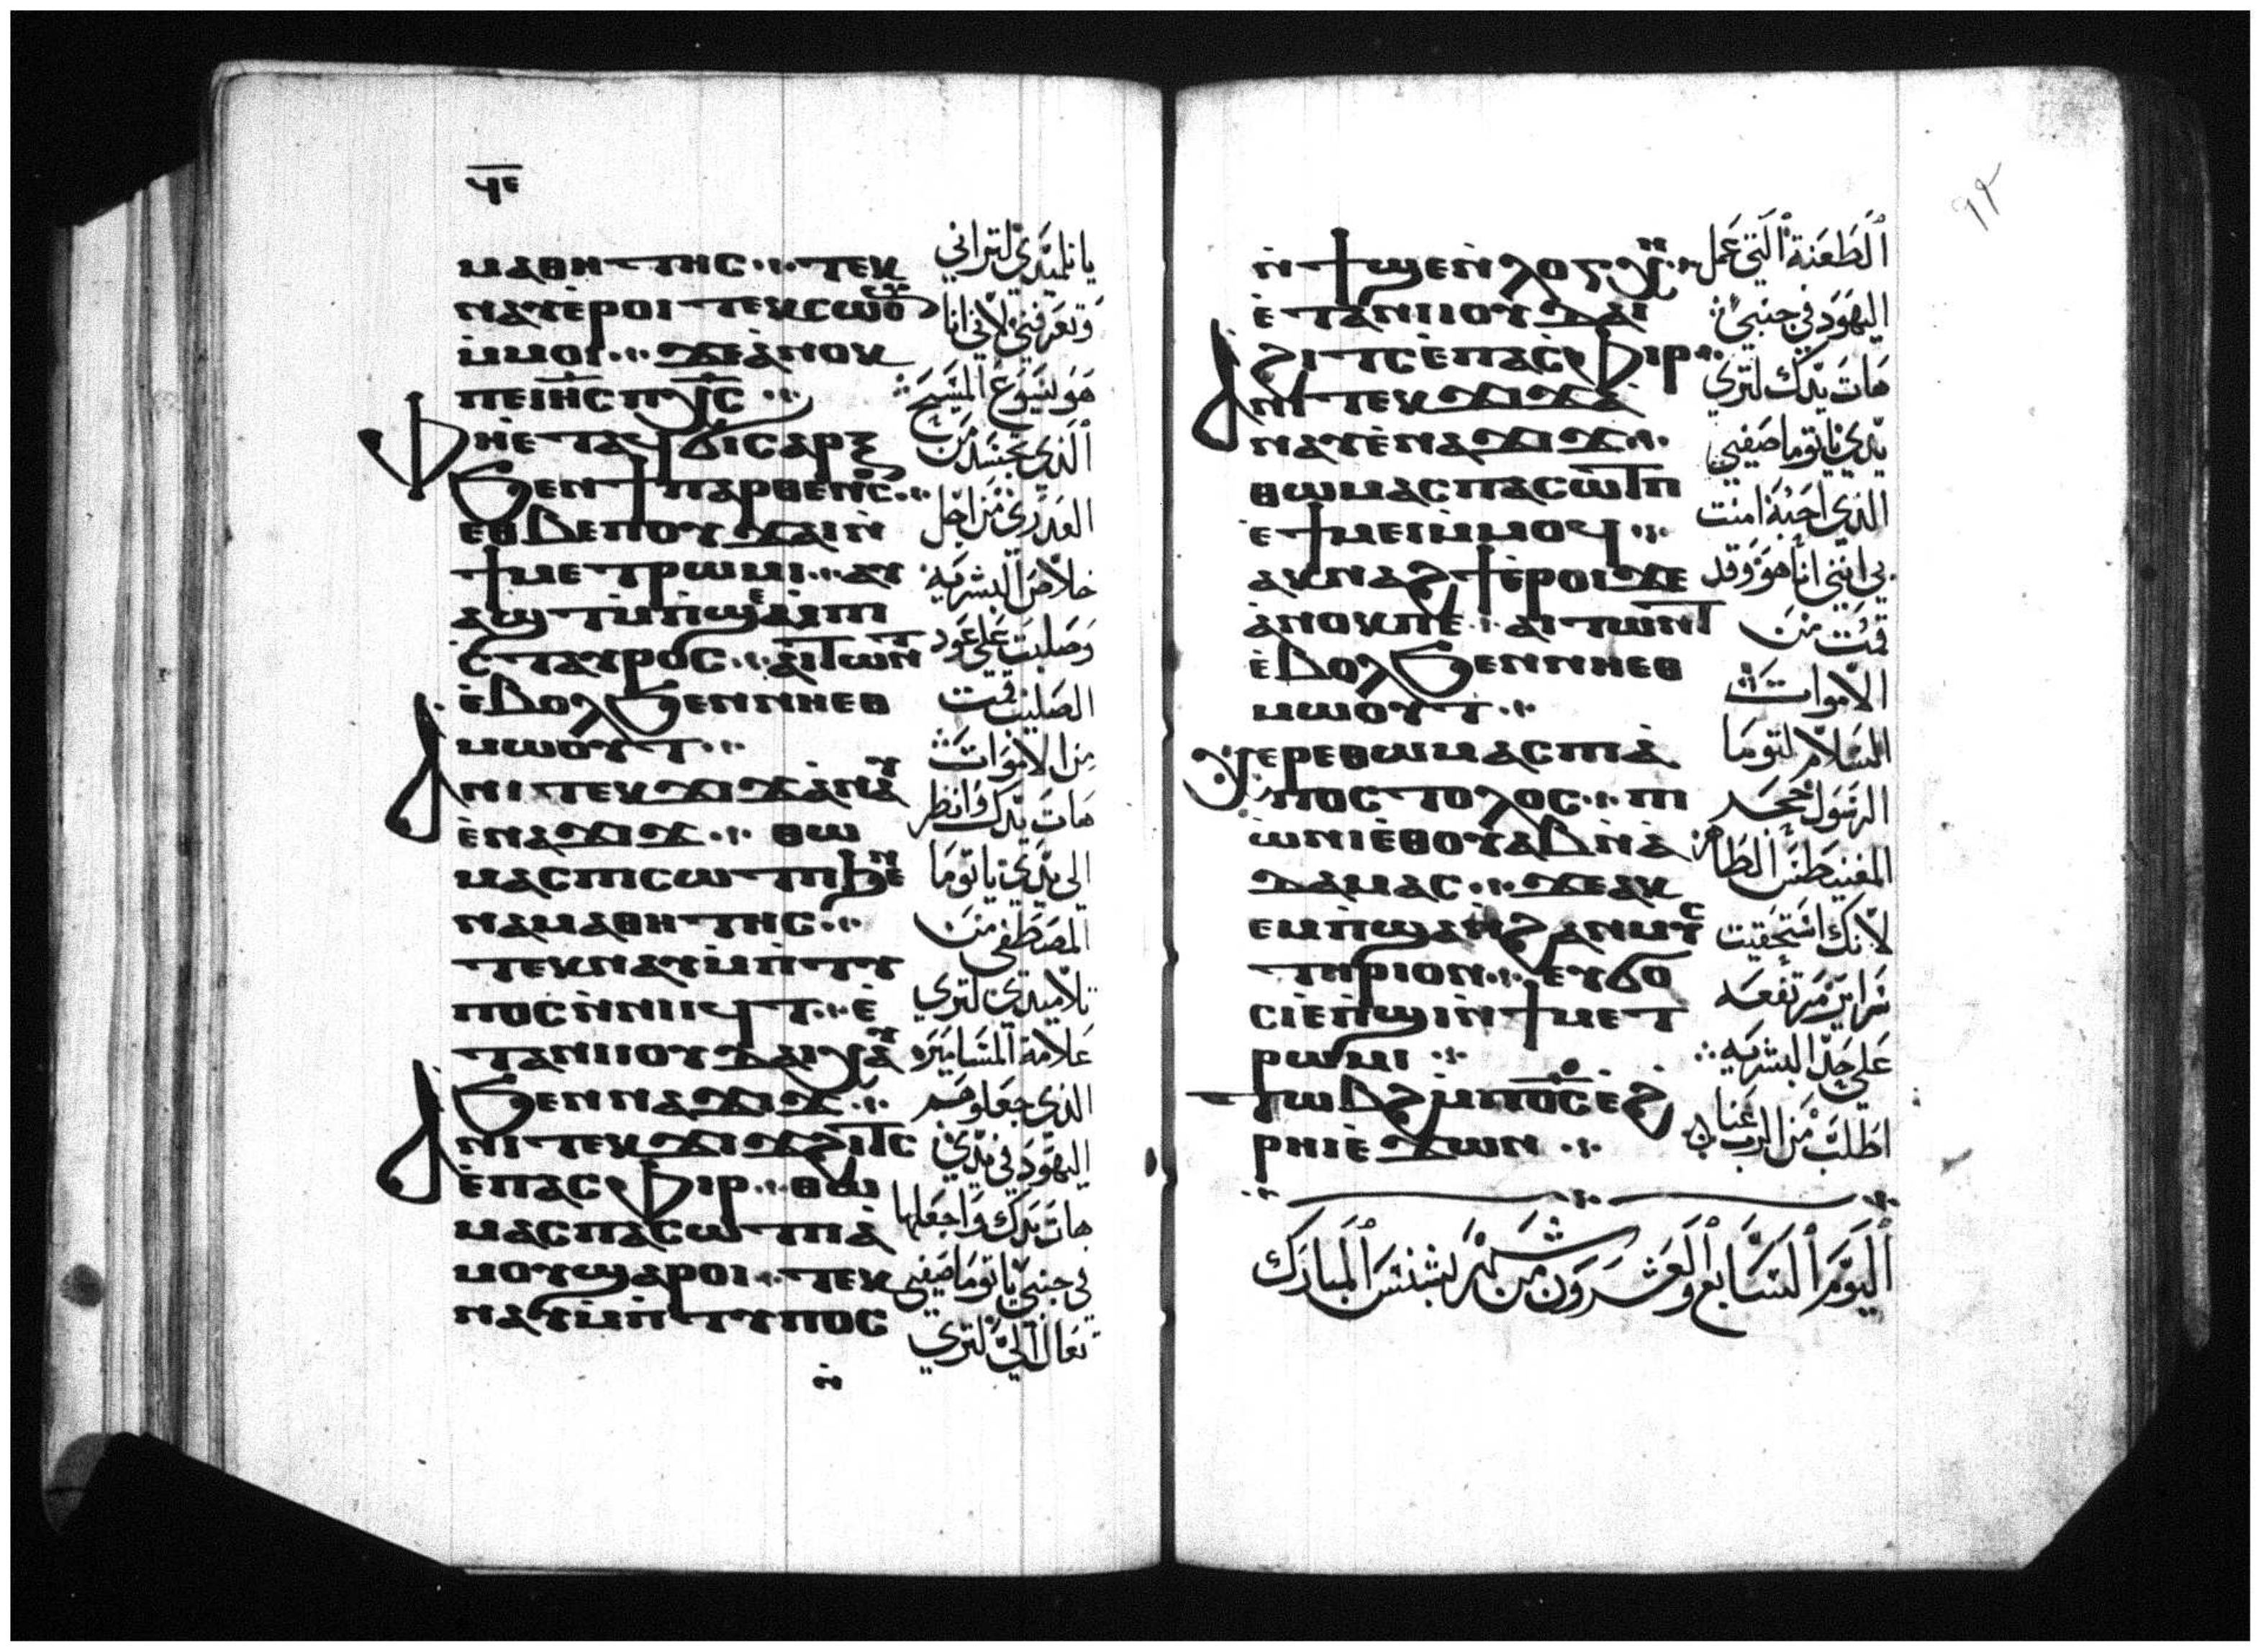 ϥⲉ
ⲙⲁⲑⲏⲧⲏⲥ ⲧⲉⲕ
ⲛⲁⲩⲉ̀ⲣⲟⲓ ⲧⲉⲕⲥⲱⲟⲩⲛ
ⲙ̀ⲙⲟⲓ ϫⲉⲁ̀ⲛⲟⲕ
ⲡⲉⲓⲏ̅ⲥ̅ ⲡⲭ̅ⲥ̅
ⲫⲏⲉ̀ⲧⲁϥϭⲓⲥⲁⲣⲝ
ϧⲉⲛϯⲡⲁⲣⲑⲉⲛⲟⲥ
ⲉⲑⲃⲉⲡⲟⲩϫⲁⲓⲛ̀
ϯⲙⲉⲧⲣⲱⲙⲓ ⲁⲩ
ⲁϣⲧⲙ̀ⲡ̀ϣⲉⲙ̀ⲡⲓ
ⲥ̀ⲧⲁⲩⲣⲟⲥ ⲁⲓⲧⲱⲛⲧ
ⲉ̀ⲃⲟⲗϧⲉⲛⲛⲏⲉⲑ
ⲙⲱⲟⲩⲧ
ⲁⲛⲓⲧⲉⲕϫⲓϫⲁ̀ⲛⲁⲩ
ⲉ̀ⲛⲁϫⲓϫ ⲑⲱ
ⲙⲁⲥⲡⲓⲥⲱⲧⲡϧⲉⲛ
ⲛⲁⲙⲁⲑⲏⲧⲏⲥ
ⲧⲉⲕⲛⲁⲩⲙ̀ⲡ̀ⲧⲩ
ⲡⲟⲥⲛ̀ⲛⲓⲓϥⲧ ⲉ̀
ⲧⲁⲛⲓⲓⲟⲩⲇⲁⲓⲭⲁⲩ
ϧⲉⲛⲛⲁϫⲓϫ
ⲁⲛⲓⲧⲉⲕϫⲓϫϩⲓⲧⲥ
ⲉ̀ⲡⲁⲥⲫⲓⲣ ⲑⲱ
ⲙⲁⲥⲡⲁⲥⲱⲧⲡⲁ̀
ⲙⲟⲩϣⲁⲣⲟⲓ ⲧⲉⲕ
ⲛⲁⲩⲙ̀ⲡ̀ⲧⲩⲡⲟⲥ
ⲛ̀
يا تلميذي لتراني
وتعرفني لاني انا
هو يسوع المسيح
الذي تجسد من
العدري من اجل
خلاص البشريه
وصلبت على عود
الصليب قمت
من الاموات
هات يدك وانظر
الى يدي يا توما
المصطفى من
تلاميدي لتري
علامة المسامير
الذي جعلوهم
اليهود في يدي
هات يدك واجعلها
في جنبي يا توما صفيي
تعال الي لتري
٩٢
ⲛ̀ϯϣⲉⲛ̀ⲗⲟⲅⲭⲏ
ⲉ̀ⲧⲁⲛⲓⲓⲟⲩⲇⲁⲓ
ϩⲓⲧⲥⲉ̀ⲡⲁⲥⲫⲓⲣ
ⲁⲛⲓⲧⲉⲕϫⲓϫⲁ̀
ⲛⲁⲩⲉ̀ⲛⲁϫⲓϫ
ⲑⲱⲙⲁⲥⲡⲁⲥⲱⲧⲡ
ⲉ̀ϯⲙⲉⲓⲙ̀ⲙⲟϥ
ⲁⲕⲛⲁϩϯⲉ̀ⲣⲟⲓϫⲉ
ⲁ̀ⲛⲟⲕⲡⲉ ⲁⲓⲧⲱⲛⲧ
ⲉ̀ⲃⲟⲗϧⲉⲛⲛⲏⲉⲑ
ⲙⲱⲟⲩⲧ
ⲭⲉⲣⲉⲑⲱⲙⲁⲥⲡⲓⲁ̀
ⲡⲟⲥⲧⲟⲗⲟⲥ ⲡⲓ
ⲱ̀ⲛⲓⲉ̀ⲑⲟⲩⲁⲃⲛ̀ⲁ̀
ⲇⲁⲙⲁⲥ ϫⲉⲁⲕ
ⲉⲙⲡ̀ϣⲁⲛ̀ϩⲁⲛⲙⲩⲥ
ⲧⲏⲣⲓⲟⲛ ⲉⲩϭⲟ
ⲥⲓⲉ̀ⲡ̀ϣⲓⲛ̀ϯⲙⲉⲧ
ⲣⲱⲙⲓ
ⲧⲱⲃϩⲙ̀ⲡⲟ̅ⲥ̅ⲉ̀ϩ
ⲣⲏⲓⲉ̀ϫⲱⲛ
الطعنة التي عمل
اليهود في جنبي
هات يدك لتري
يدي يا توما صفيي
الذي احبه امنت
بي انني انا هو وقد
قمت من
الاموات
السلام لتوما
الرسول حجر
المغنيطس الطاهر
لانك استحقيت
سراير مرتفعه
على حد البشريه
اطلب من الرب عنا
اليوم السابع والعشرون من شهر بشنس المبارك